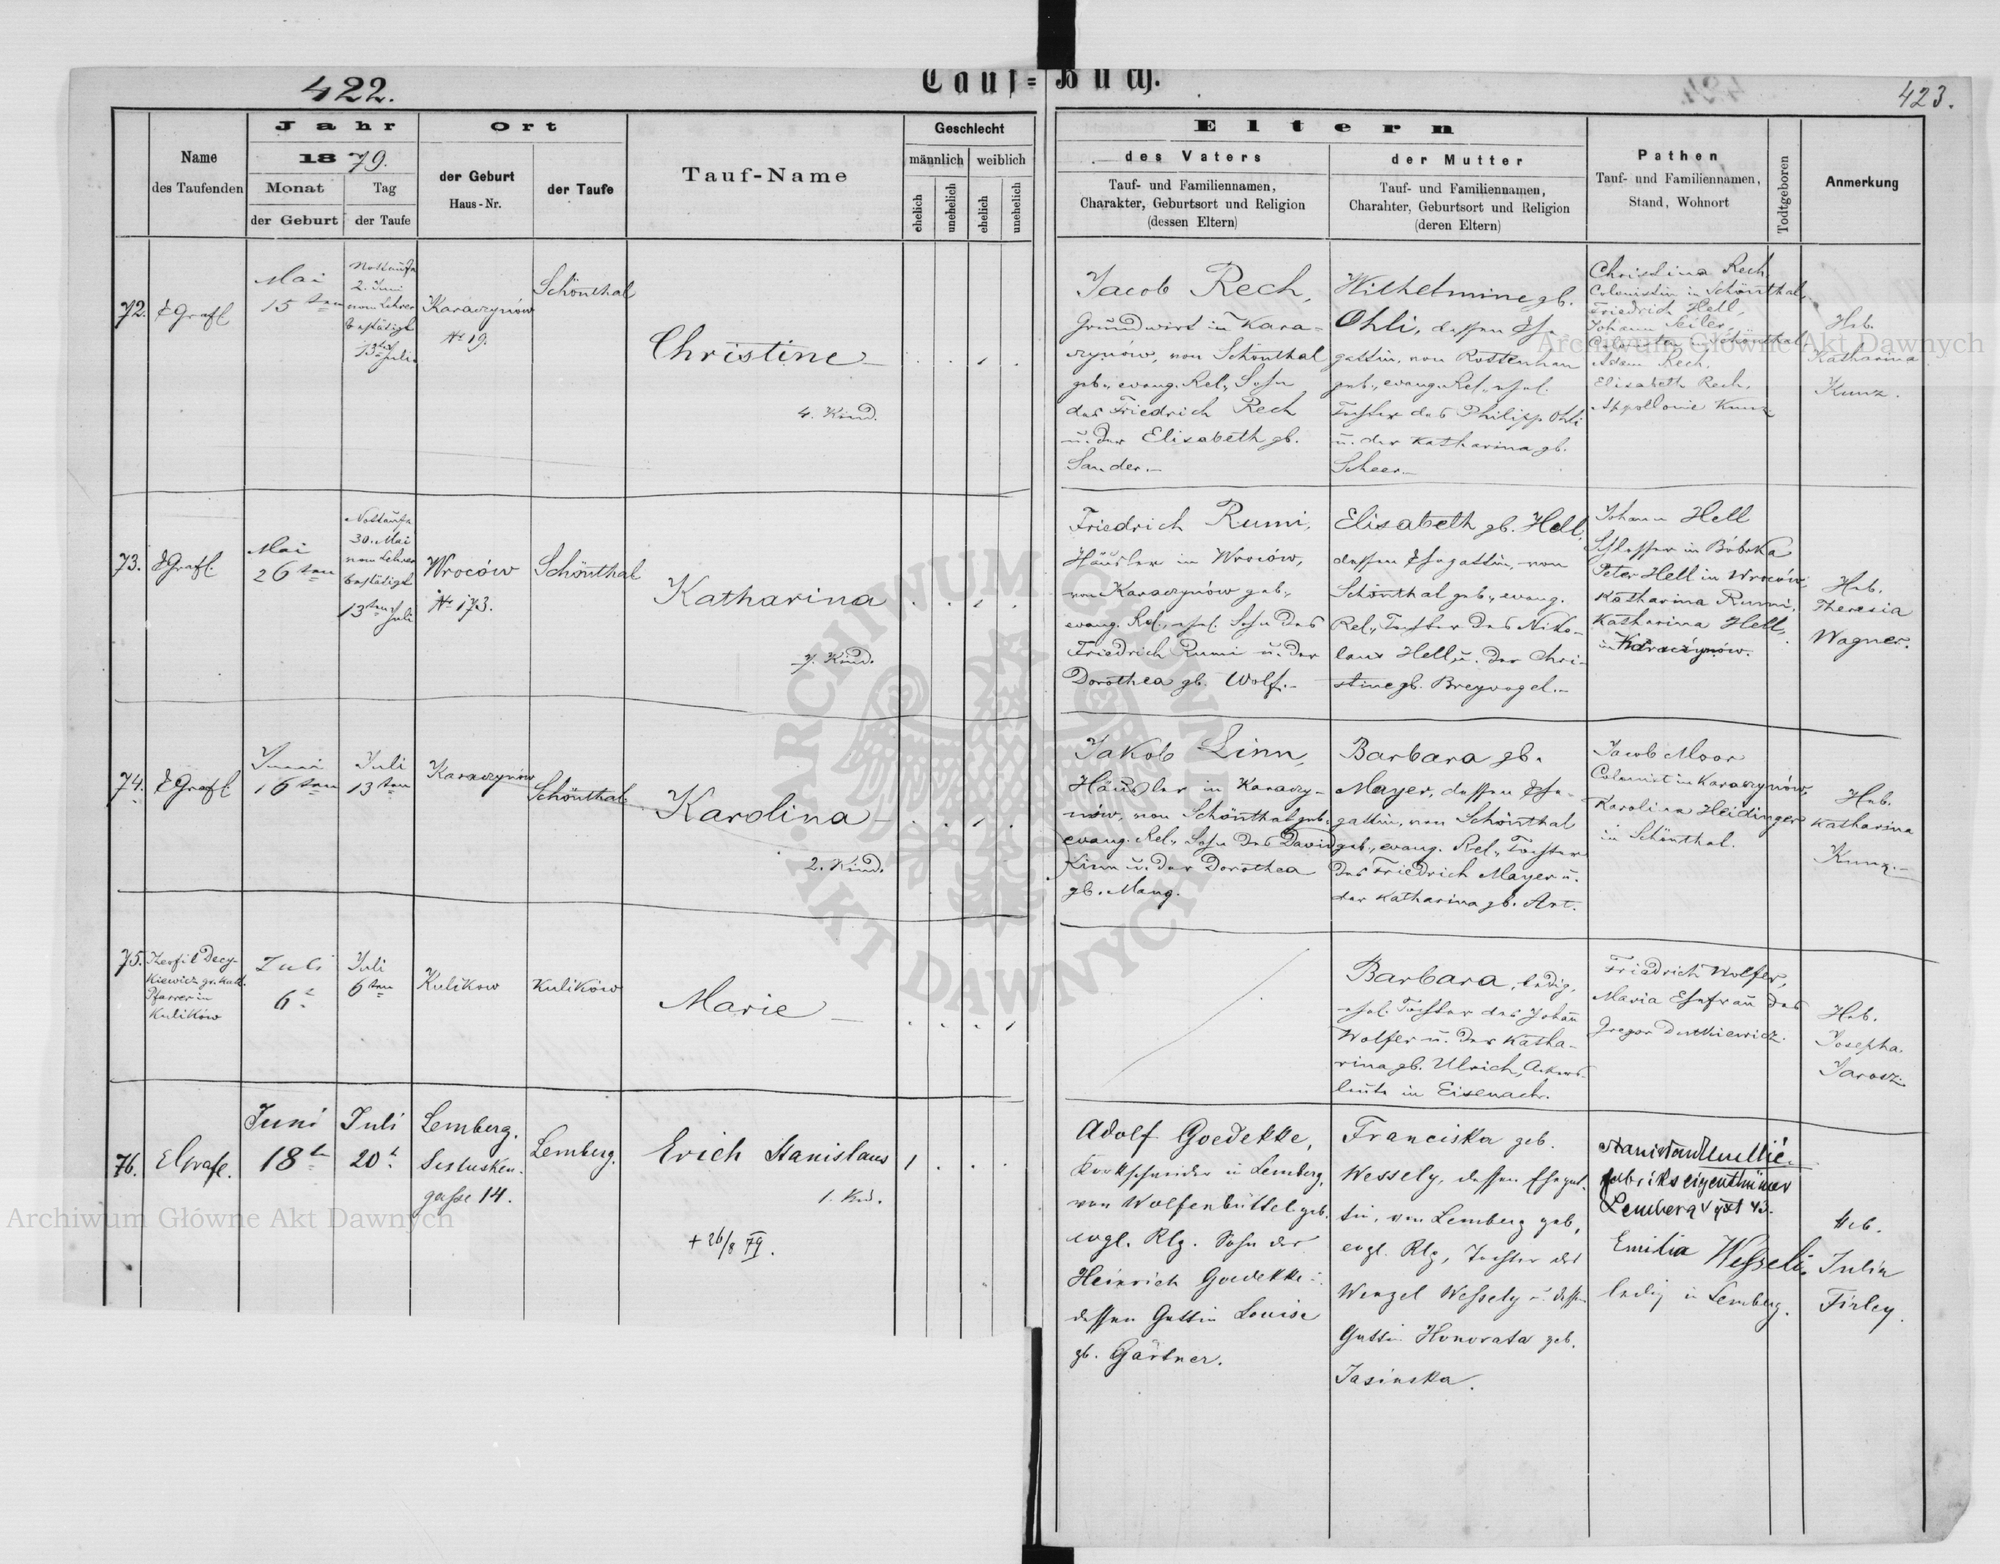 422.
Tauf=Buch.
423.
Name
des Taufenden
Jahr
1879.
Monat
der Geburt
Tag
der Taufe
Ort
der Geburt
Haus-Nr.
der Taufe
Tauf-Name
Geschlecht
männlich
weiblich
ehelich
unehelich
ehelich
unehelich
Eltern
des Vaters
Tauf- und Familiennamen,
Charakter, Geburtsort und Religion
(dessen Eltern)
der Mutter
Tauf- und Familiennamen,
Charahter, Geburtsort und Religion
(deren Eltern)
Pathen
Tauf- und Familiennamen,
Stand, Wohnort
Todtgeboren
Anmerkung
72.
EGrafl
Mai
15ten
Nottaufe
2. Juni
vom Lehrer
bestätigt
13ten Juli
Karaczynów
No 19.
Schönthal
Christine
4. Kind.
Jacob Rech,
Grundwirt in Kara-
czynów, von Schönthal
geb., evang. Rel., Sohn
des Friedrich Rech
u. der Elisabeth gb.
Sander.-
Wilhelmine gb.
Ohli, dessen Ehe-
gattin, von Rottenhan
geb., evang. Rel., ehel.
Tochter des Philipp Ohli
u. der Katharina gb.
Scheer.-
Christina Rech,
Colonistin in Schönthal,
Friedrich Hell,
Johann Seiler,
Colonisten in Schönthal
Adam Rech,
Elisabeth Rech,
Appollonie Kunz
Heb.
Katharina
Kunz.
73.
EGrafl.
Mai
26ten
Nottaufe
30. Mai
vom Lehrer
bestätigt
13ten Juli
Wroców
No 173.
Schönthal
Katharina
7. Kind.
Friedrich Rumi,
Häusler in Wroców,
von Karaczynów geb.,
evang. Rel., ehel. Sohn des
Friedrich Rumi u. der
Dorothea gb. Wolf.-
Elisabeth gb. Hell,
dessen Ehegattin, von
Schönthal geb., evang.
Rel., Tochter des Niko-
laus Hell u. der Chri-
stine gb. Breyvogel.-
Johann Hell
Schlosser in Bóbrka
Peter Hell in Wroców,
Katharina Rumi,
Katharina Hell,
in Karaczynów.
Heb.
Theresia
Wagner.
74.
EGrafl
Juni
16ten
Juli
13ten
Karaczynów
Schönthal
Karolina
2. Kind.
Jakob Linn,
Häusler in Karaczy-
nów, von Schönthal geb.
evang. Rel., Sohn des David
Linn u. der Dorothea
gb. Mang.
Barbara gb.
Mayer, dessen Ehe-
gattin, von Schönthal
geb., evang. Rel., Tochter
des Friedrich Mayer u.
der Katharina gb. Art.
Jacob Moor
Colonist in Karaczynów,
Karolina Heidinger
in Schönthal.
Heb.
Katharina
Kunz.-
75.
Decy-
kiewicz gr. kath.
Pfarrer in
Kulików
Juli
6t
Juli
6ten
Kulikow
Kulików
Marie
Barbara, ledig,
ehel. Tochter des Johann
Wolfer u. der Katha-
rina gb. Ulrich, Ackers-
leute in Eisenach.
Friedrich Wolfer,
Maria Ehefrau des
Gregor Dutkiewicz.
Heb.
Josepha
Jarosz
76.
EGrafl.
Juni
18t
Juli
20t
Lemberg.
gasse 14.
Lemberg.
Erich Stanislaus
1
1. Kind.
+ 26/8 79.
Adolf Goedekke,
Korkschneider in Lemberg,
von Wolfenbüttel geb.
evgl. Rlg. Sohn des
Heinrich Goedekke u.
dessen Gattin Louise
gb. Gärtner.
Franciska geb.
Wessely, dessen Ehegat-
tin, von Lemberg geb,
evgl. Rlg, Tochter des
Wenzel Wessely u. dessen
Gattin Honorata geb.
Jasinska.
Fabrikseigenthümer
Lemberg
Emilia Wesseli,
ledig in Lemberg.
Heb.
Julia
Firley.
Archiwum Główne Akt Dawnych
Archiwum Główne Akt Dawnych
ARCHIWUM GŁÓWNE AKT DAWNYCH